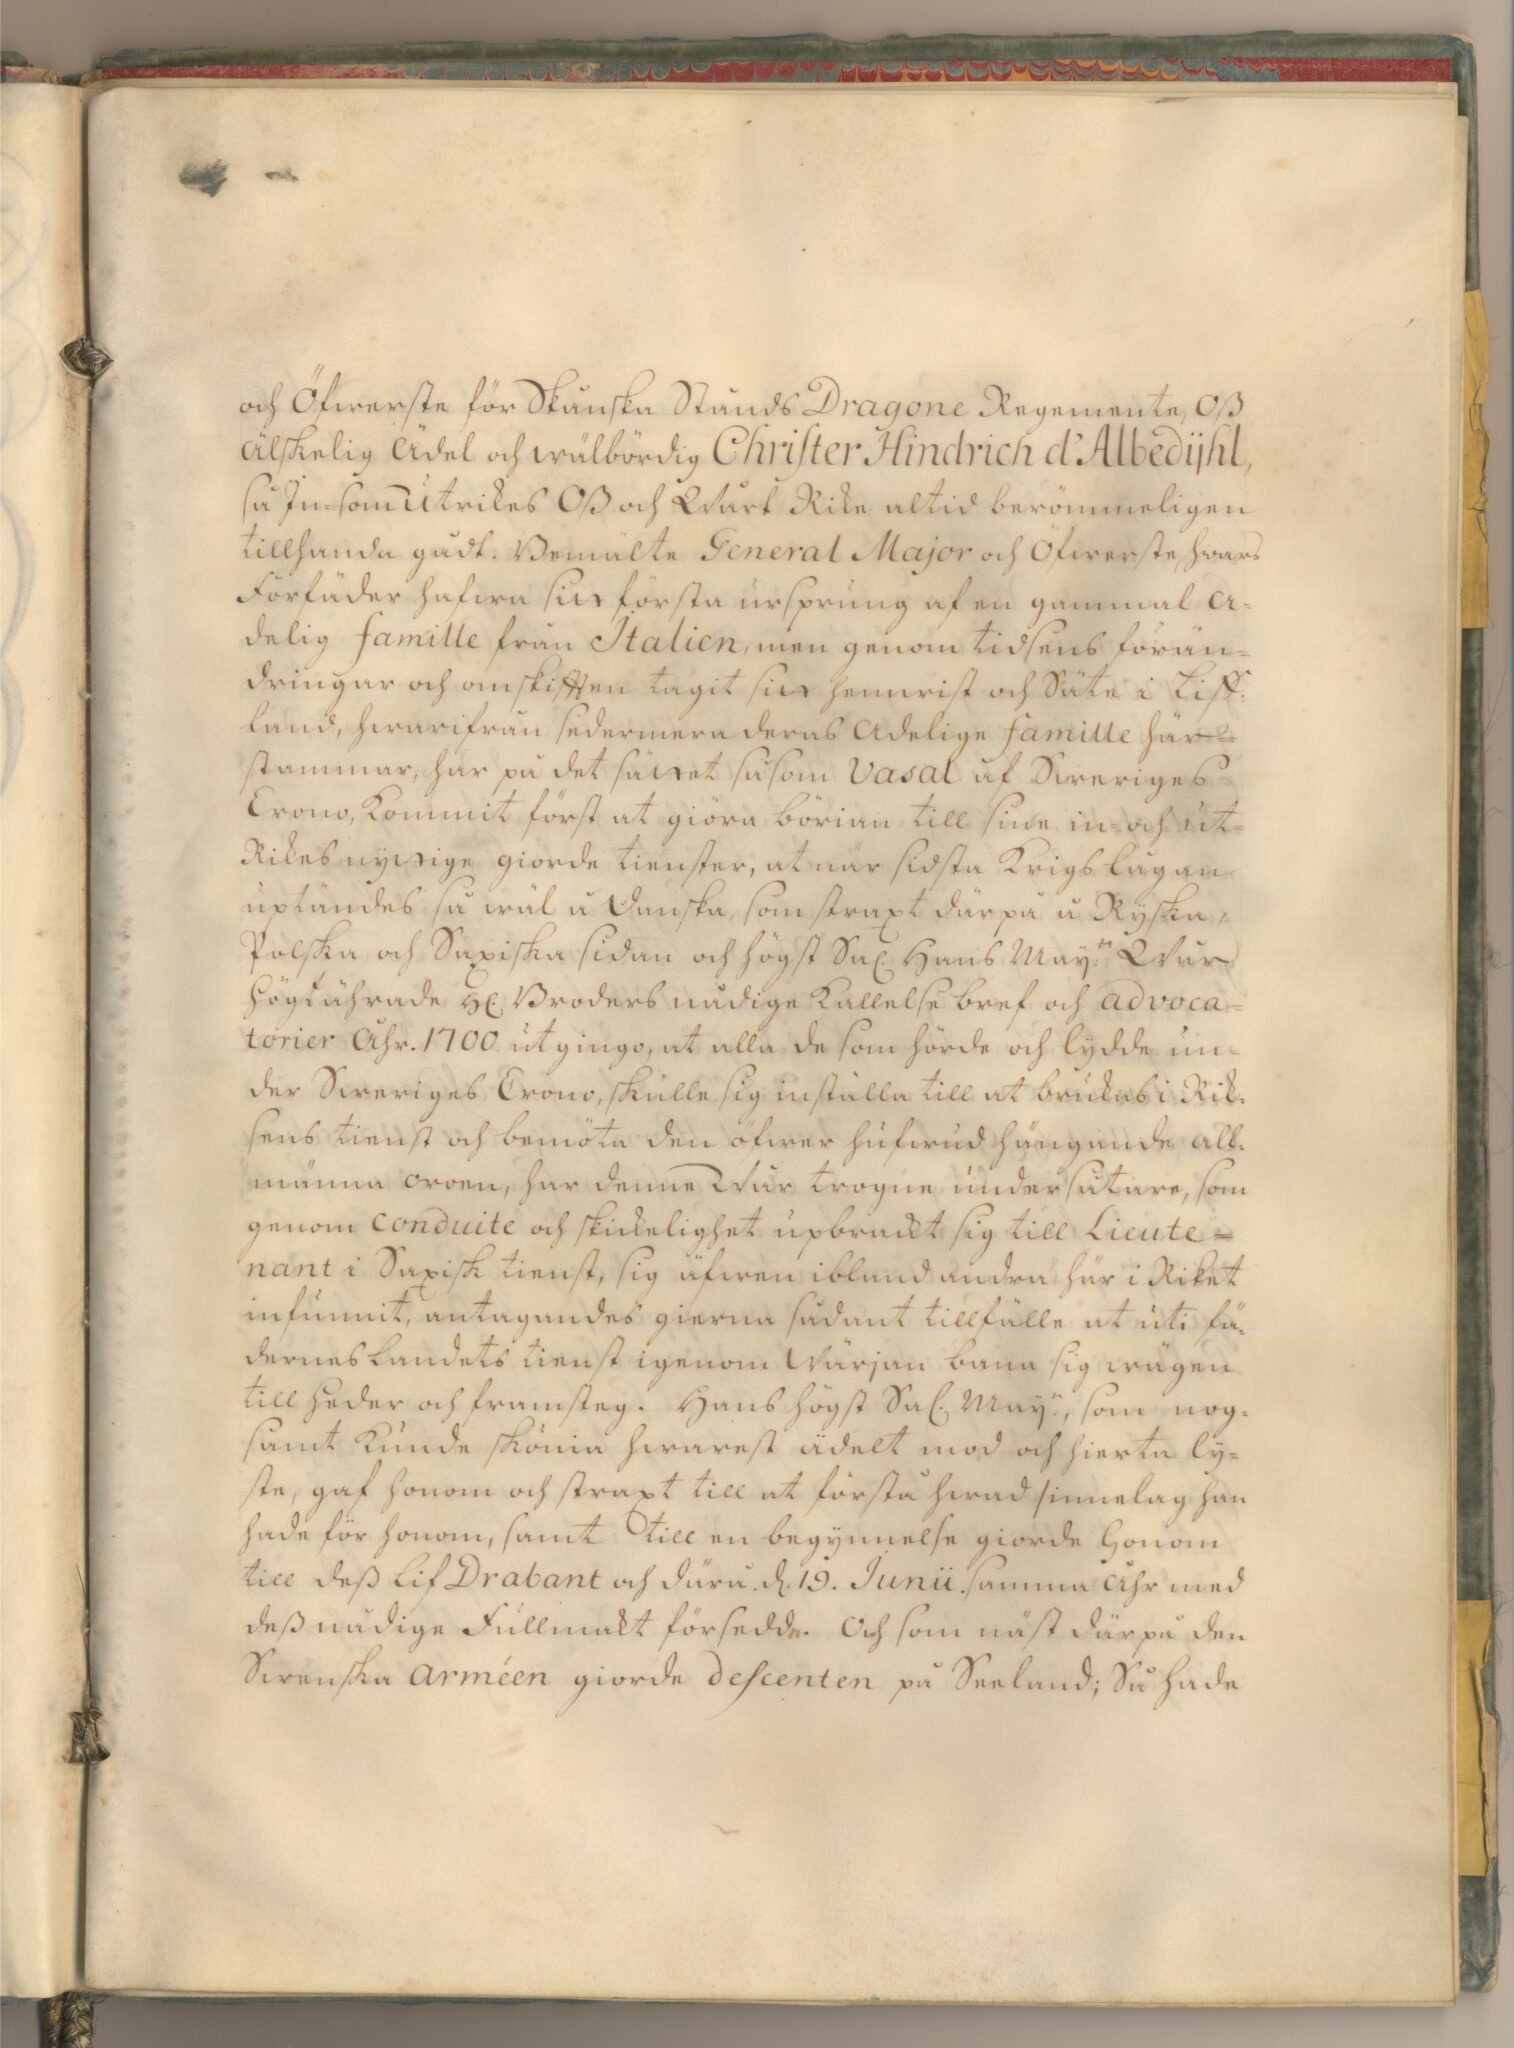 och Öfwerste för Skånska Stånds Dragone Regemente, Oß
älskelig Ädel och wälbördig Christer Hindrich d'Albedÿhl,
så In- som Utrikes Oß och Wårt Rike altid berömmeligen
tillhanda gådt. Bemälte General Major och Öfwerste, hwars
Förfäder hafwa sitt första ursprung af en gammal A-
delig famille från Italien, men genom tidsens förän-
dringar och omskifften tagit sitt hemwist och Säte i Liff-
land, hwarifrån sedermera deras Adelige famille här-
stammar, har på det sättet såsom Vasal af Sweriges
Crono, kommit först at giöra början till sine in- och ut-
Rikes nyttige giorde tienster, at när sidsta Krigs lågan
uptändes så wäl å Danska, som straxt därpå å Ryska,
Polska och Saxiska sidan och högst Sal. Hans May:tz Wår
Högtährade H. Broders nådige Kallelse bref och advoca-
torier Åhr. 1700. utgingo, at alla de som hörde och lydde un-
der Sweriges Crono, skulle sig inställa till at brukas i Rik-
sens tienst och bemöta den öfwer hufwud hängande all-
männa oroen, har denne Wår trogne undersåtare, som
genom conduite och skickelighet upbrackt sig till Lieute-
nant i Saxisk tienst, sig äfwen ibland andra här i Riket
infunnit, antagandes gierna sådant tillfälle at uti fä-
derneslandets tienst igenom Wärjan bana sig wägen
till heder och framsteg. Hans högst Sal. May:t, som nog-
samt kunde skönia hwarest ädelt mod och hierta ly-
ste, gaf honom och straxt till at förstå hwad sinnelag han
hade för honom, samt till en begynnelse giorde honom
till deß Lif Drabant och därå d. 19. Junii samma Åhr med
deß nådige Fullmakt försedde. Och som näst därpå den
Swenska Arméen giorde descenten på Seeland; Så hade